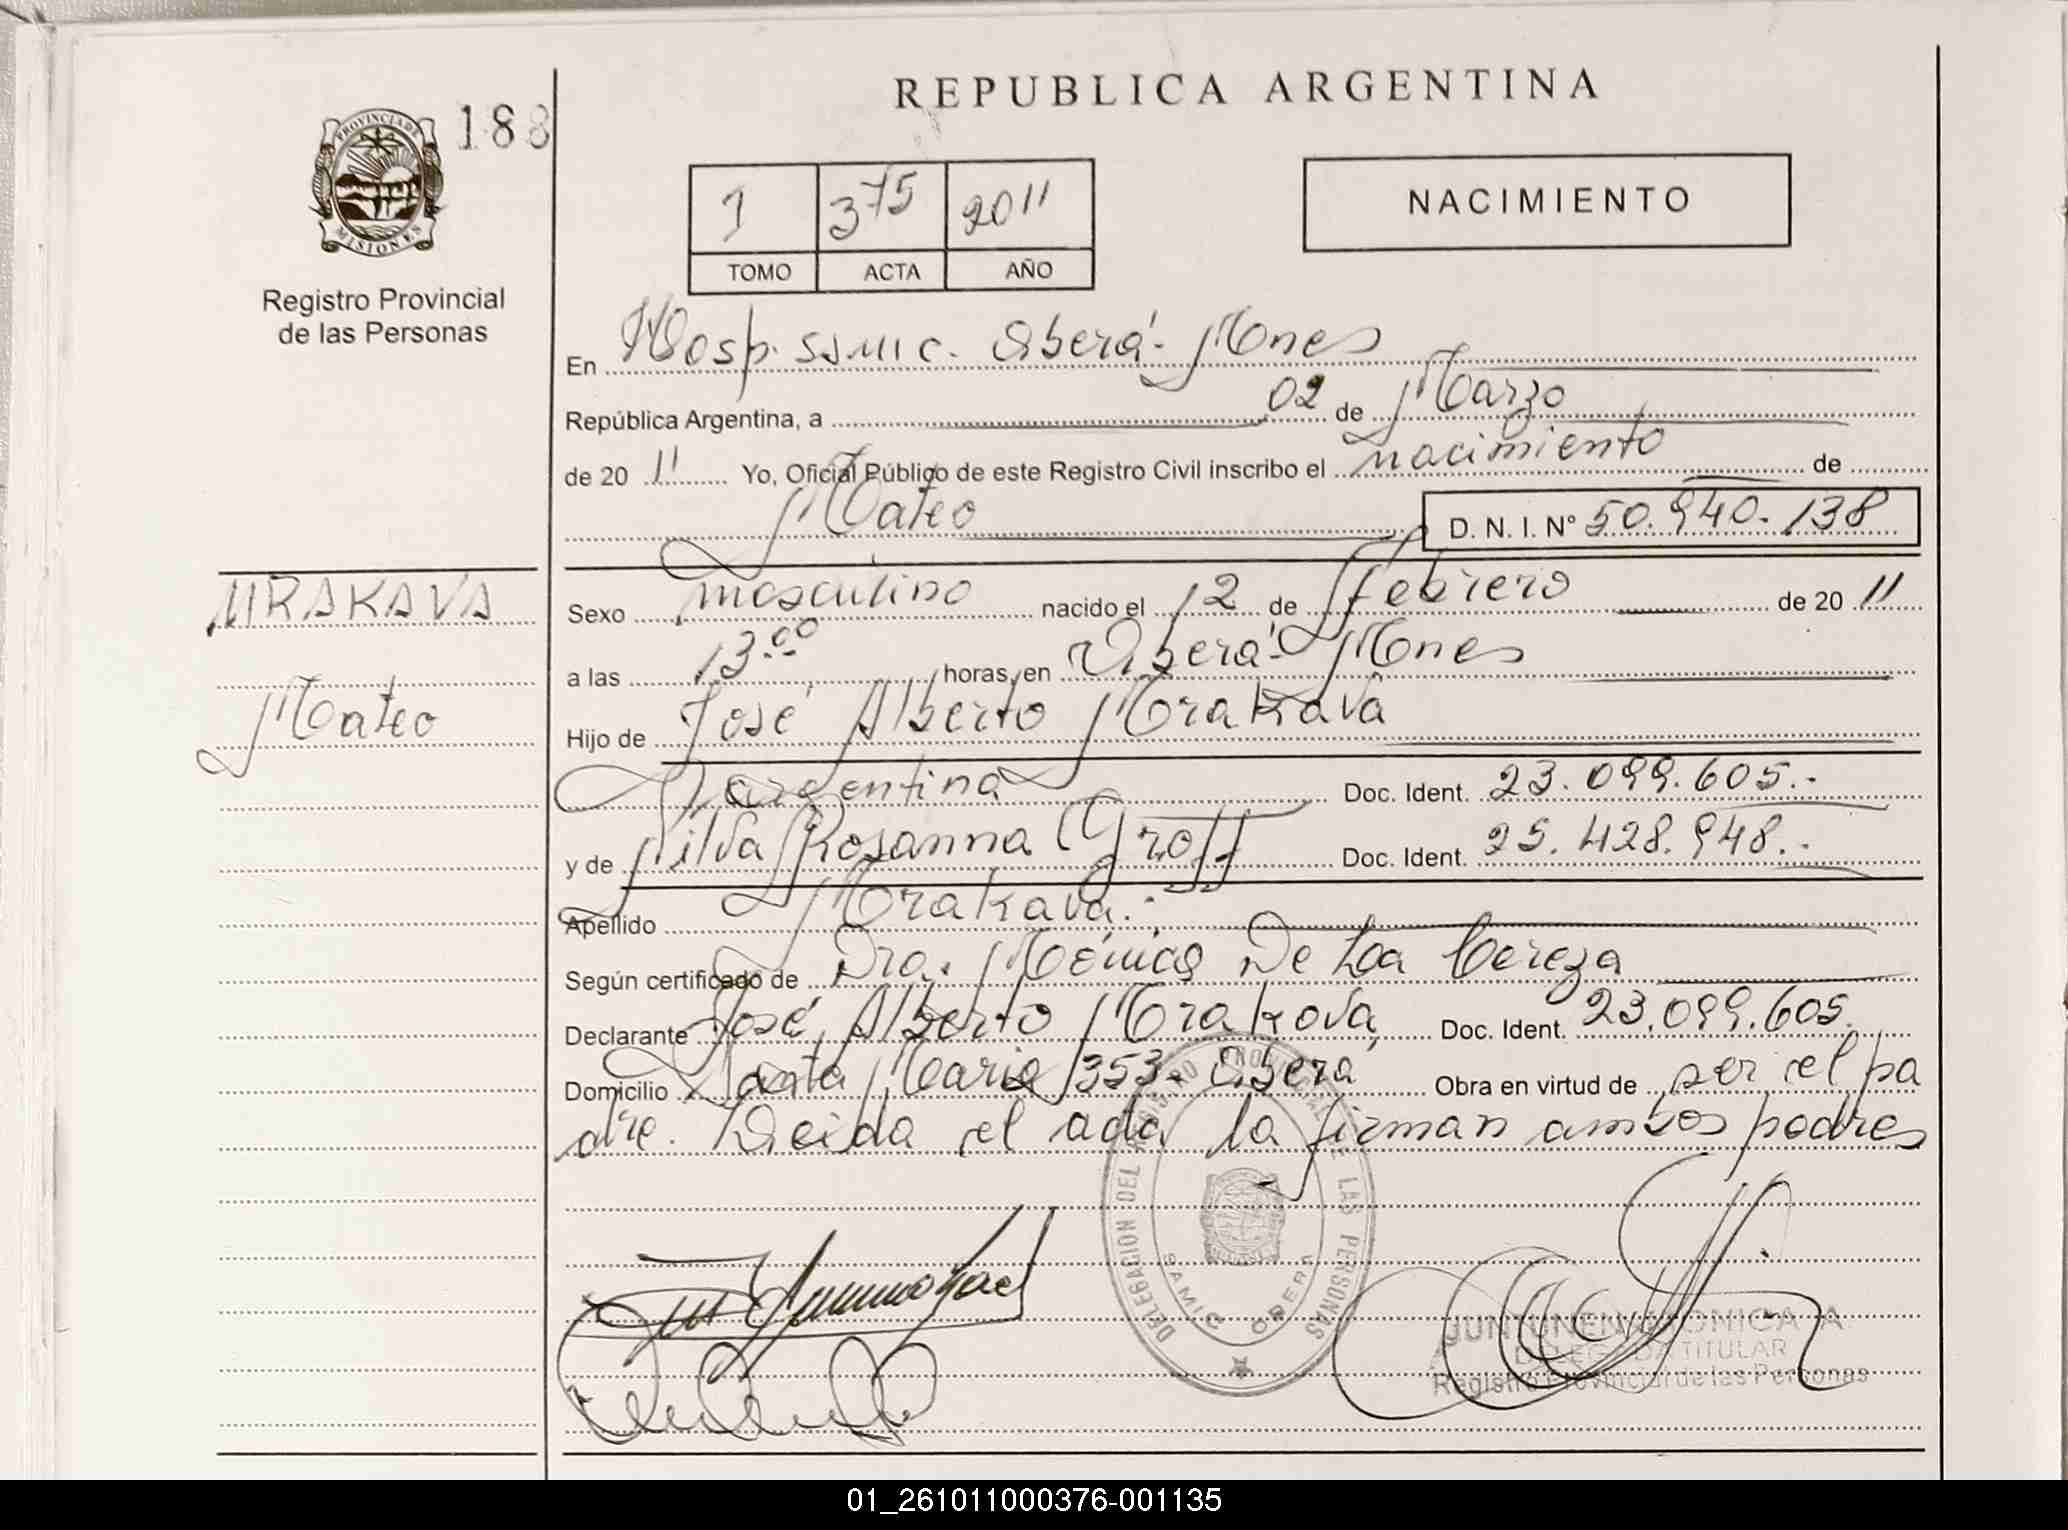 REPUBLICA ARGENTINA
PROVINCIA DE
MISIONES
188
Registro Provincial
de las Personas
1 375 2011
TOMO ACTA AÑO
NACIMIENTO
En Hosp. SAMIC. Oberá - Mnes
República Argentina, a 02 de Marzo
de 20 11 Yo, Oficial Público de este Registro Civil inscribo el nacimiento de
Mateo D. N. I. N° 50.940.138
MRAKAVA
Mateo
Sexo masculino nacido el 12 de febrero de 20 11
a las 13.00 horas, en Oberá - Mnes
Hijo de José Alberto Mrakava
argentina Doc. Ident. 23.099.605.-
y de Silva Rosanna Groff Doc. Ident. 25.428.948.-
Apellido Mrakava.-
Según certificado de Dra. Mónica De La Cereza
Declarante José Alberto Mrakava Doc. Ident. 23.099.605.
Domicilio Santa Maria 353 - Oberá Obra en virtud de ser el pa
dre. Leida el acta la firman ambos padres
DELEGACION DEL REGISTRO PROVINCIAL DE LAS PERSONAS
SAMIC OBERA
JUNTUNEN MONICA A.
DELEGADA TITULAR
Registro Provincial de las Personas
01_261011000376-001135